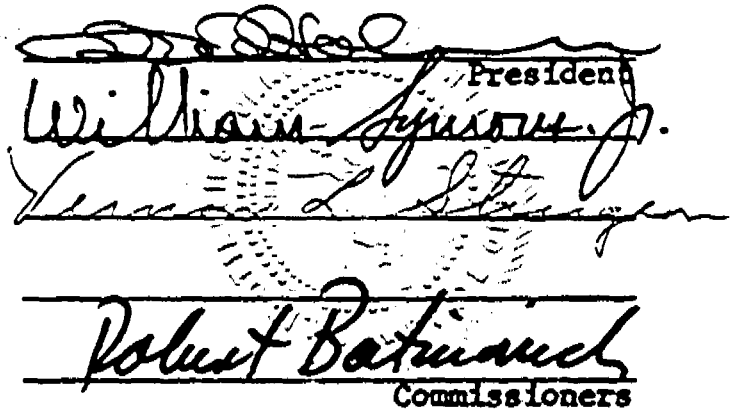 President
William Symons. Jr.
Vernon L. Sturgeon
Robert Batinovich
Commissioners